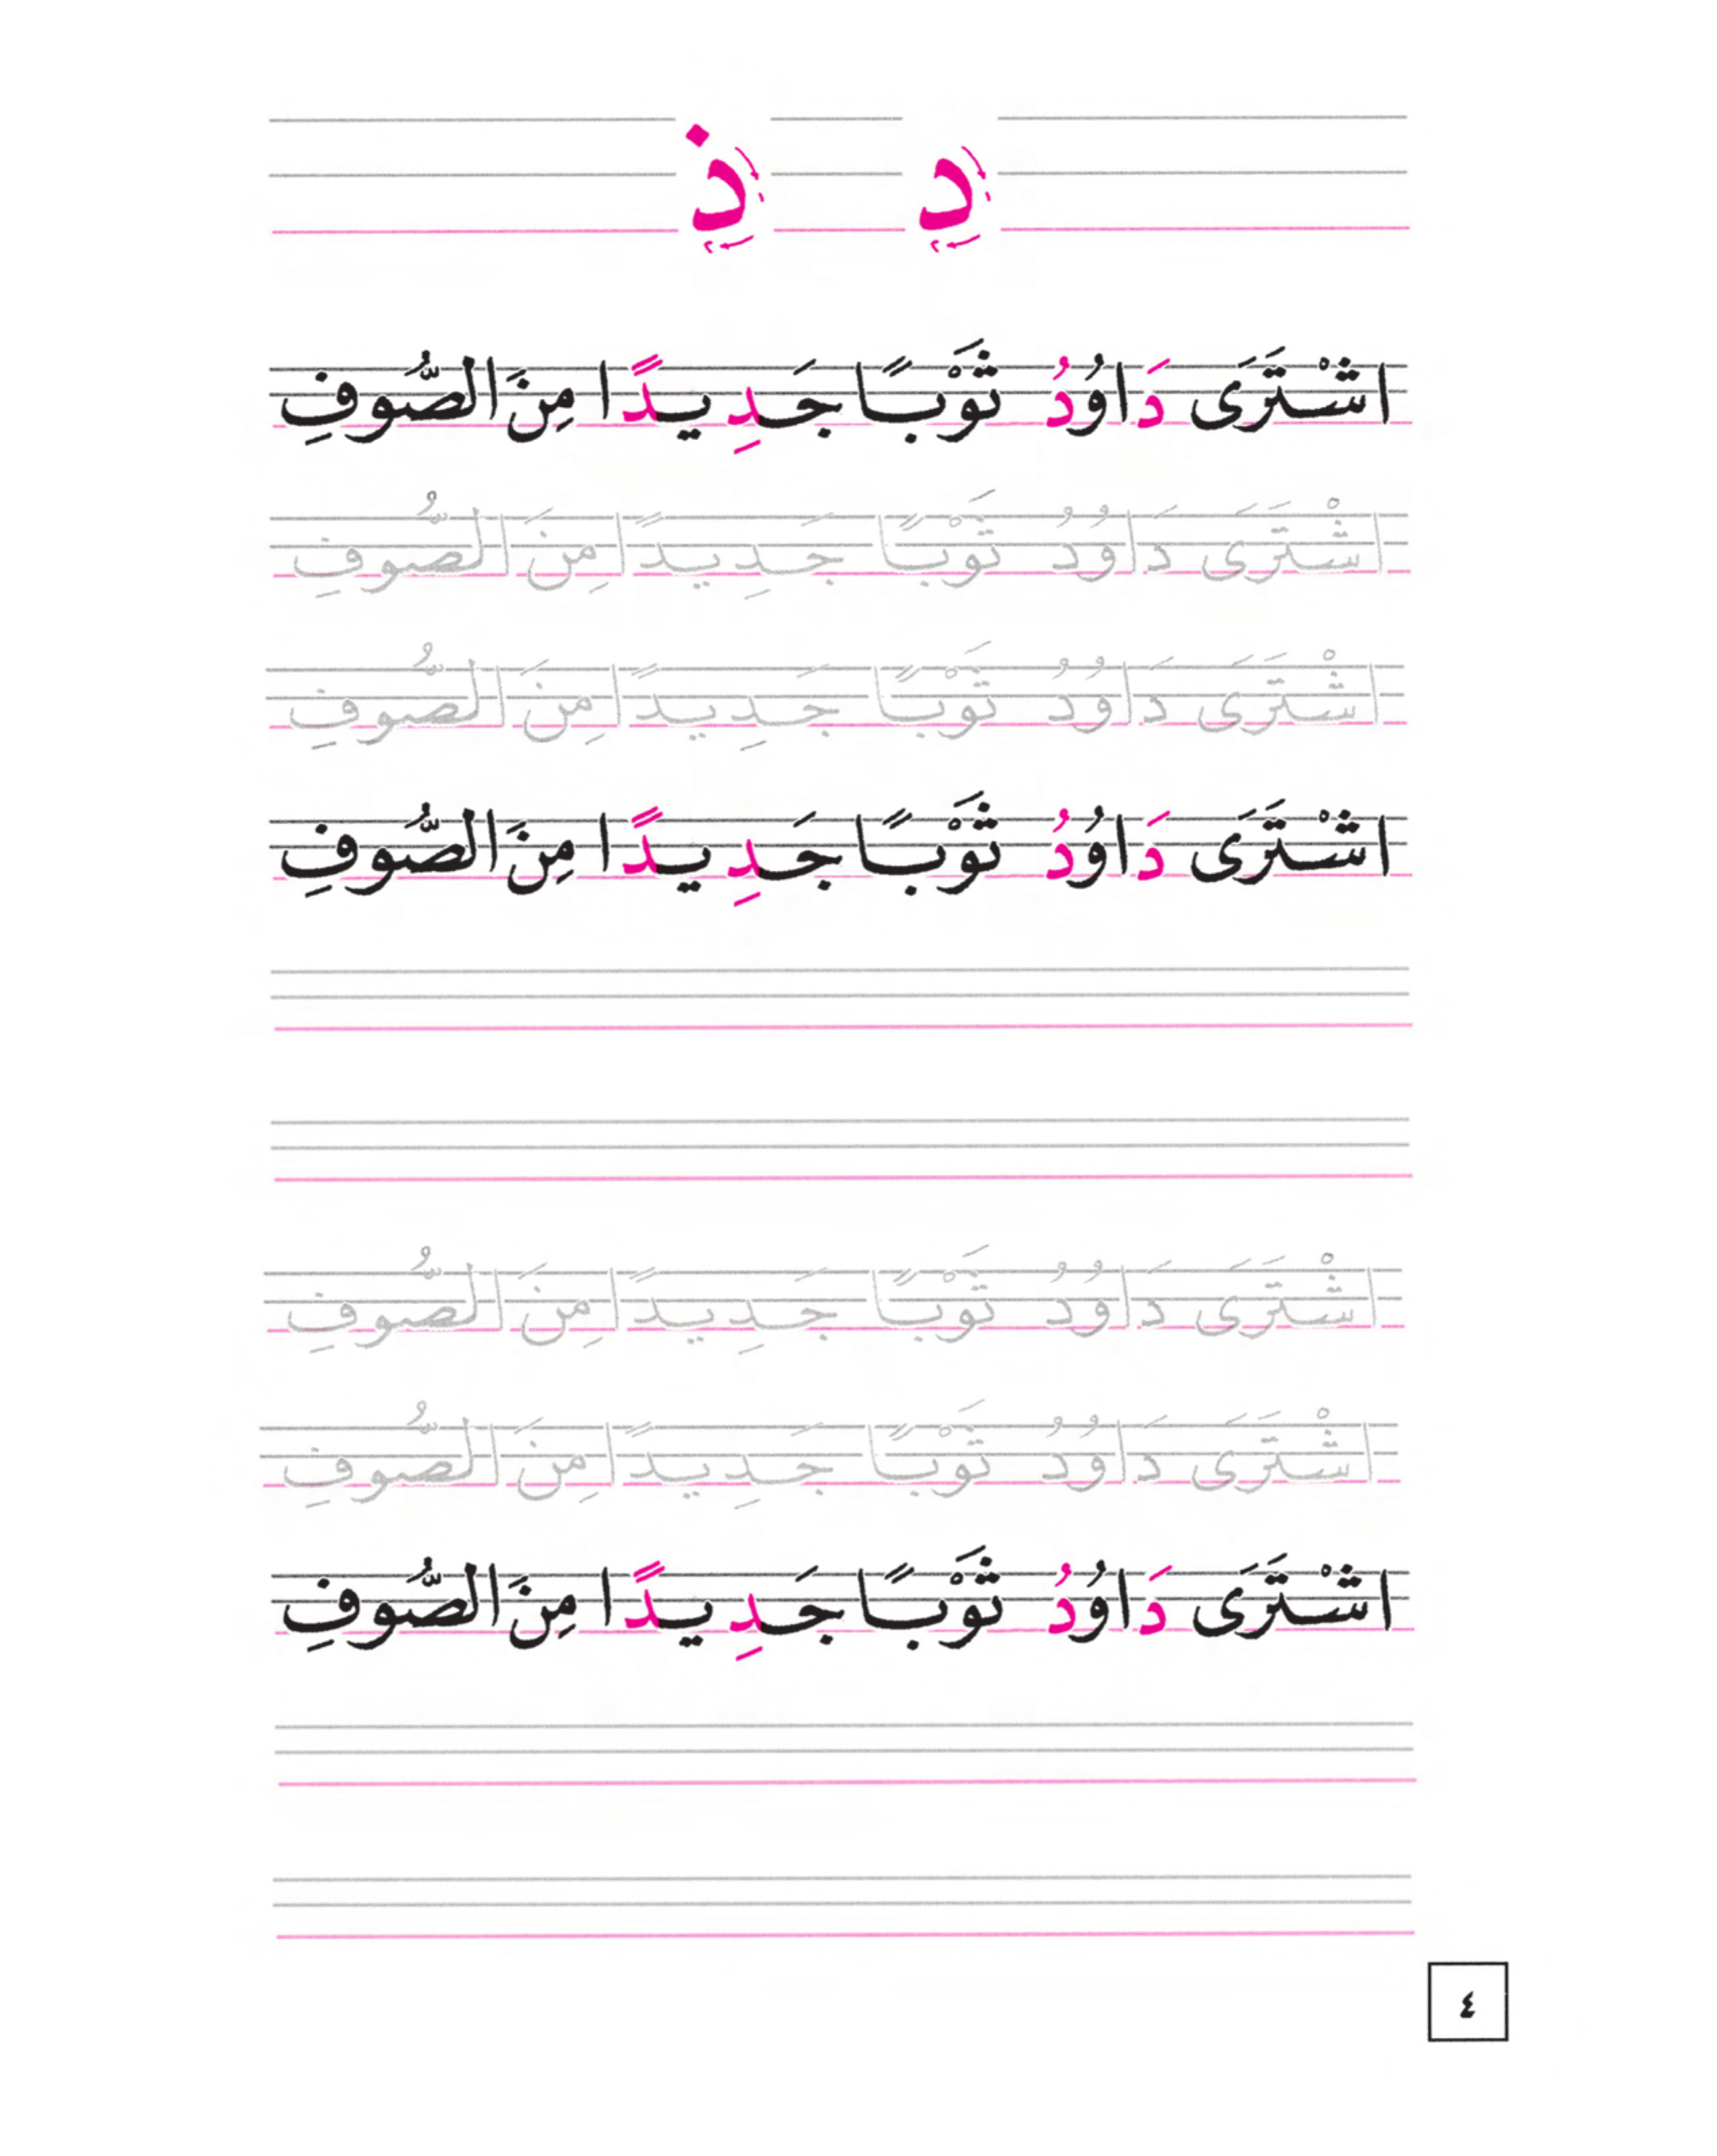 د ذ
اشْتَرَى دَاوُدُ ثَوْبًا جَدِيدًا مِنَ الصُّوفِ
اشْتَرَى دَاوُدُ ثَوْبًا جَدِيدًا مِنَ الصُّوفِ
اشْتَرَى دَاوُدُ ثَوْبًا جَدِيدًا مِنَ الصُّوفِ
اشْتَرَى دَاوُدُ ثَوْبًا جَدِيدًا مِنَ الصُّوفِ
اشْتَرَى دَاوُدُ ثَوْبًا جَدِيدًا مِنَ الصُّوفِ
اشْتَرَى دَاوُدُ ثَوْبًا جَدِيدًا مِنَ الصُّوفِ
اشْتَرَى دَاوُدُ ثَوْبًا جَدِيدًا مِنَ الصُّوفِ
٤